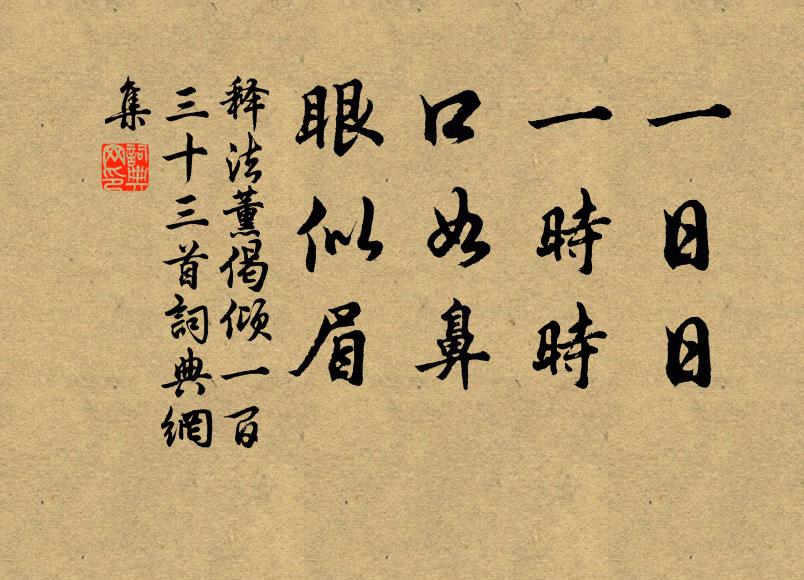 一日日
一時時
口如鼻
眼似眉
释法薰偈倾一百
三十三首詞典網
集
詞典
网印